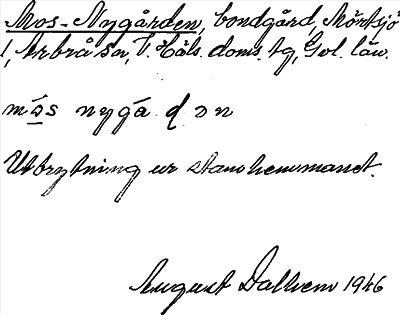 Mos-Nygården, bondgård, Mörtsjö
1, Arbrå sn, V. Häls. doms. tg, Gvl. län.
mɷs nygɑ̄ ɖ ɔn
Utbrytning ur stamhemmanet.
August Dalhem 1946